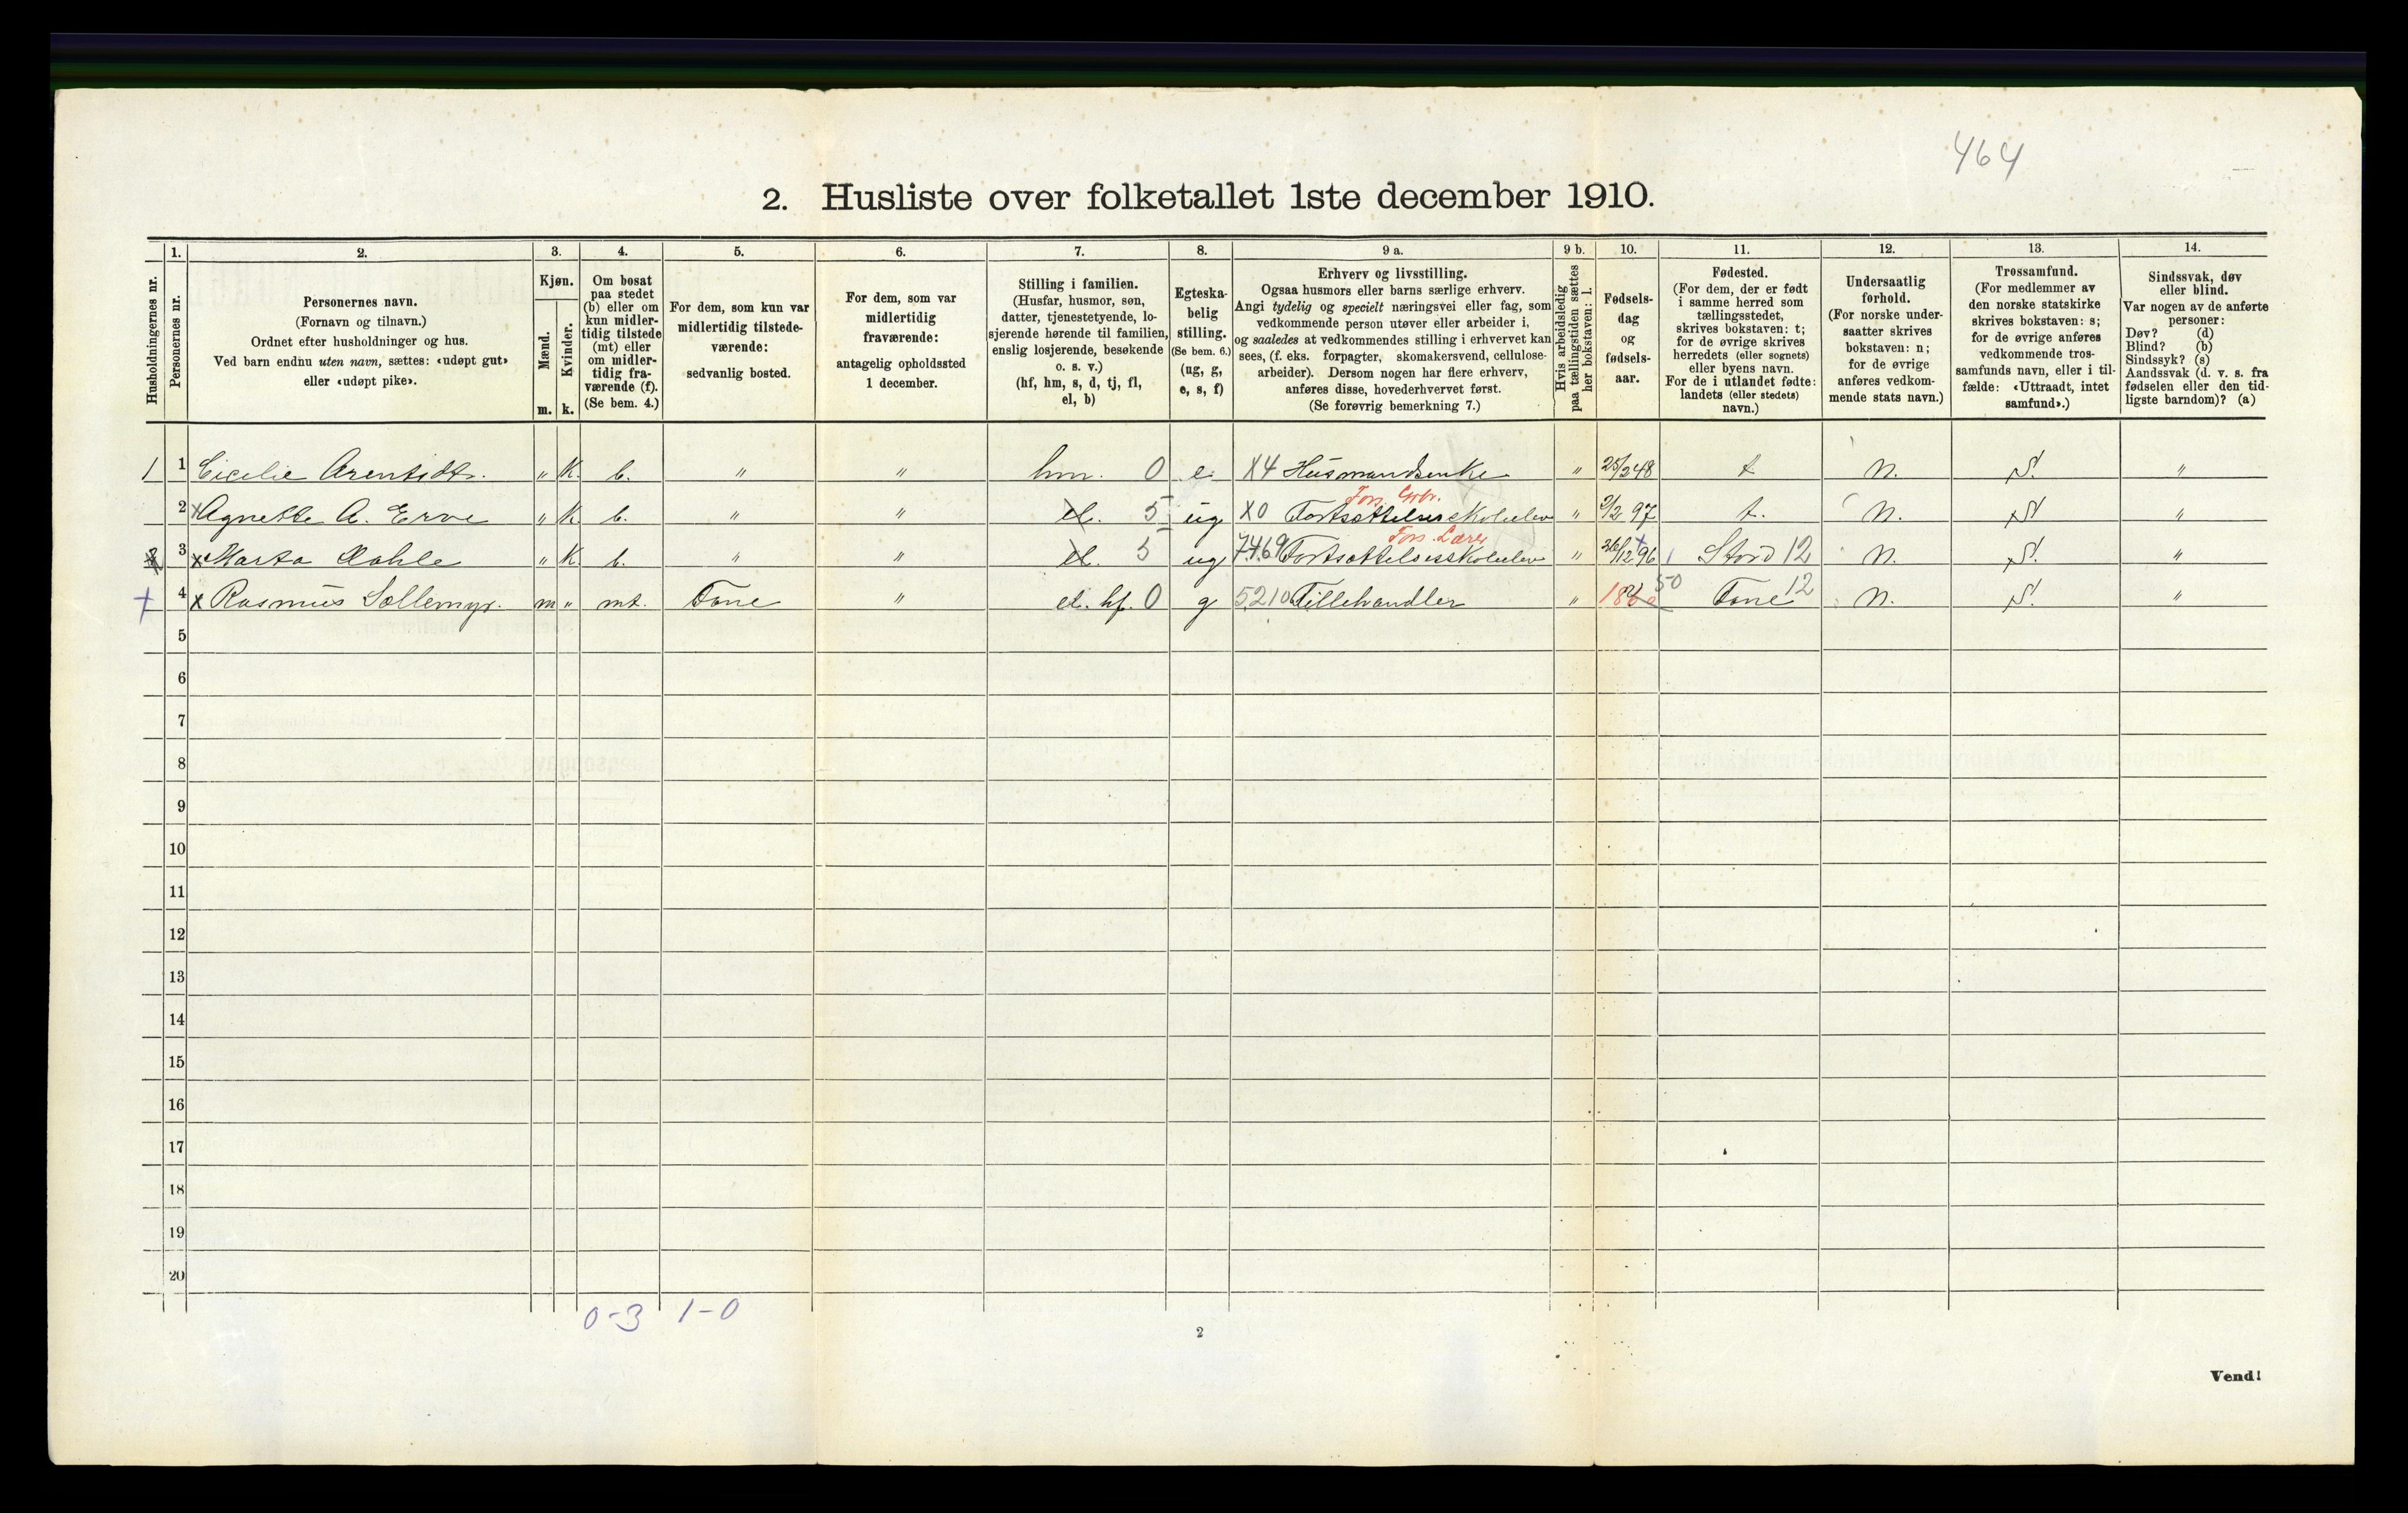 464
2. Husliste over folketallet 1ste december 1910.
Husholdningernes nr.
1.
Personernes nr.
2.
Personernes navn.
(Fornavn og tilnavn.)
Ordnet efter husholdninger og hus.
Ved barn endnu uten navn, sættes: «udøpt gut»
eller «udøpt pike».
3.
Kjøn.
Mænd.
m.
Kvinder.
k.
4.
Om bosat
paa stedet
(b) eller om
kun midler-
tidig tilstede
(mt) eller
om midler-
tidig fra-
værende (f).
(Se bem. 4.)
5.
For dem, som kun var
midlertidig tilstede-
værende:
sedvanlig bosted.
6.
For dem, som var
midlertidig
fraværende:
antagelig opholdssted
1 december.
7.
Stilling i familien.
(Husfar, husmor, søn,
datter, tjenestetyende, lo-
sjerende hørende til familien,
enslig losjerende, besøkende
o. s. v.)
(hf, hm, s, d, tj, fl,
el, b)
8.
Egteska-
belig
stilling.
(Se bem. 6.)
(ug, g,
e, s, f)
9 a.
Erhverv og livsstilling.
Ogsaa husmors eller barns særlige erhverv.
Angi tydelig og specielt næringsvei eller fag, som
vedkommende person utøver eller arbeider i,
og saaledes at vedkommendes stilling i erhvervet kan
sees, (f. eks. forpagter, skomakersvend, cellulose-
arbeider). Dersom nogen har flere erhverv,
anføres disse, hovederhvervet først.
(Se forøvrig bemerkning 7.)
9 b.
Hvis arbeidsledig
paa tællingstiden sættes
her bokstaven: l.
10.
Fødsels-
dag
og
fødsels-
aar.
11.
Fødested.
(For dem, der er født
i samme herred som
tællingsstedet,
skrives bokstaven: t;
for de øvrige skrives
herredets (eller sognets)
eller byens navn.
For de i utlandet fødte:
landets (eller stedets)
navn.)
12.
Undersaatlig
forhold.
(For norske under-
saatter skrives
bokstaven: n;
for de øvrige
anføres vedkom-
mende stats navn.)
13.
Trossamfund.
(For medlemmer av
den norske statskirke
skrives bokstaven: s;
for de øvrige anføres
vedkommende tros-
samfunds navn, eller i til-
fælde: «Uttraadt, intet
samfund».)
14.
Sindssvak, døv
eller blind.
Var nogen av de anførte
personer:
Døv? (d)
Blind? (b)
Sindssyk? (s)
Aandssvak (d. v. s. fra
fødselen eller den tid-
ligste barndom)? (a)
1 1 Cicelie Arentsdtr. " K. b. " " hm. 0 e. X4 Husmandsenke " 25/2 48 t n. S. "
Fors. Grbr.
2 x Agnette A. Erve " K b. " " el. 5 ug X0 Fortsættelsesskoleelev " 2/2 97 t. n. S "
Fors. Lærer
2 3 x Marta Dahle " K b. " " el. 5 ug 7469 Fortsættelsesskoleelev " 26/12 96 Stord 12 n. S. "
+ 4 x Rasmus Sollemyr. m " mt. Fane " el. hf. 0 g 5210 Fillehandler " 50 Fane 12 n. S. "
5
6
7
8
9
10
11
12
13
14
15
16
17
18
19
20
0-3 1-0
2
Vend!